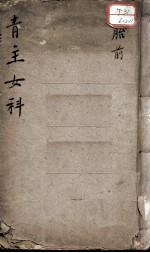 青主女科
胎前